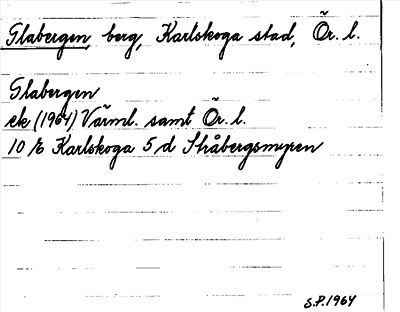 Glabergen, berg, Karlskoga stad, Ör. l.
Glabergen
ek (1964) Värml. samt Ör. l.
10 E Karlskoga 5 d Stråbergsmyren
S.P. 1964